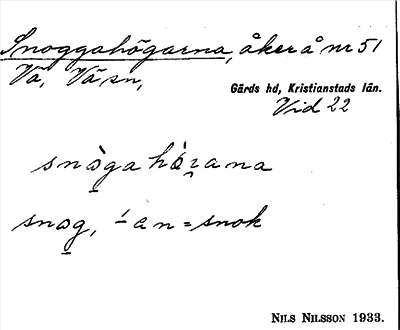 Snoggahögarna, åker å nr 51
Vä, Vä sn,
Gärds hd, Kristianstads län.
Vid 22
snɔ̀ga hǿʐana
snɔg, -́an = snok
NILS NILSSON 1933.